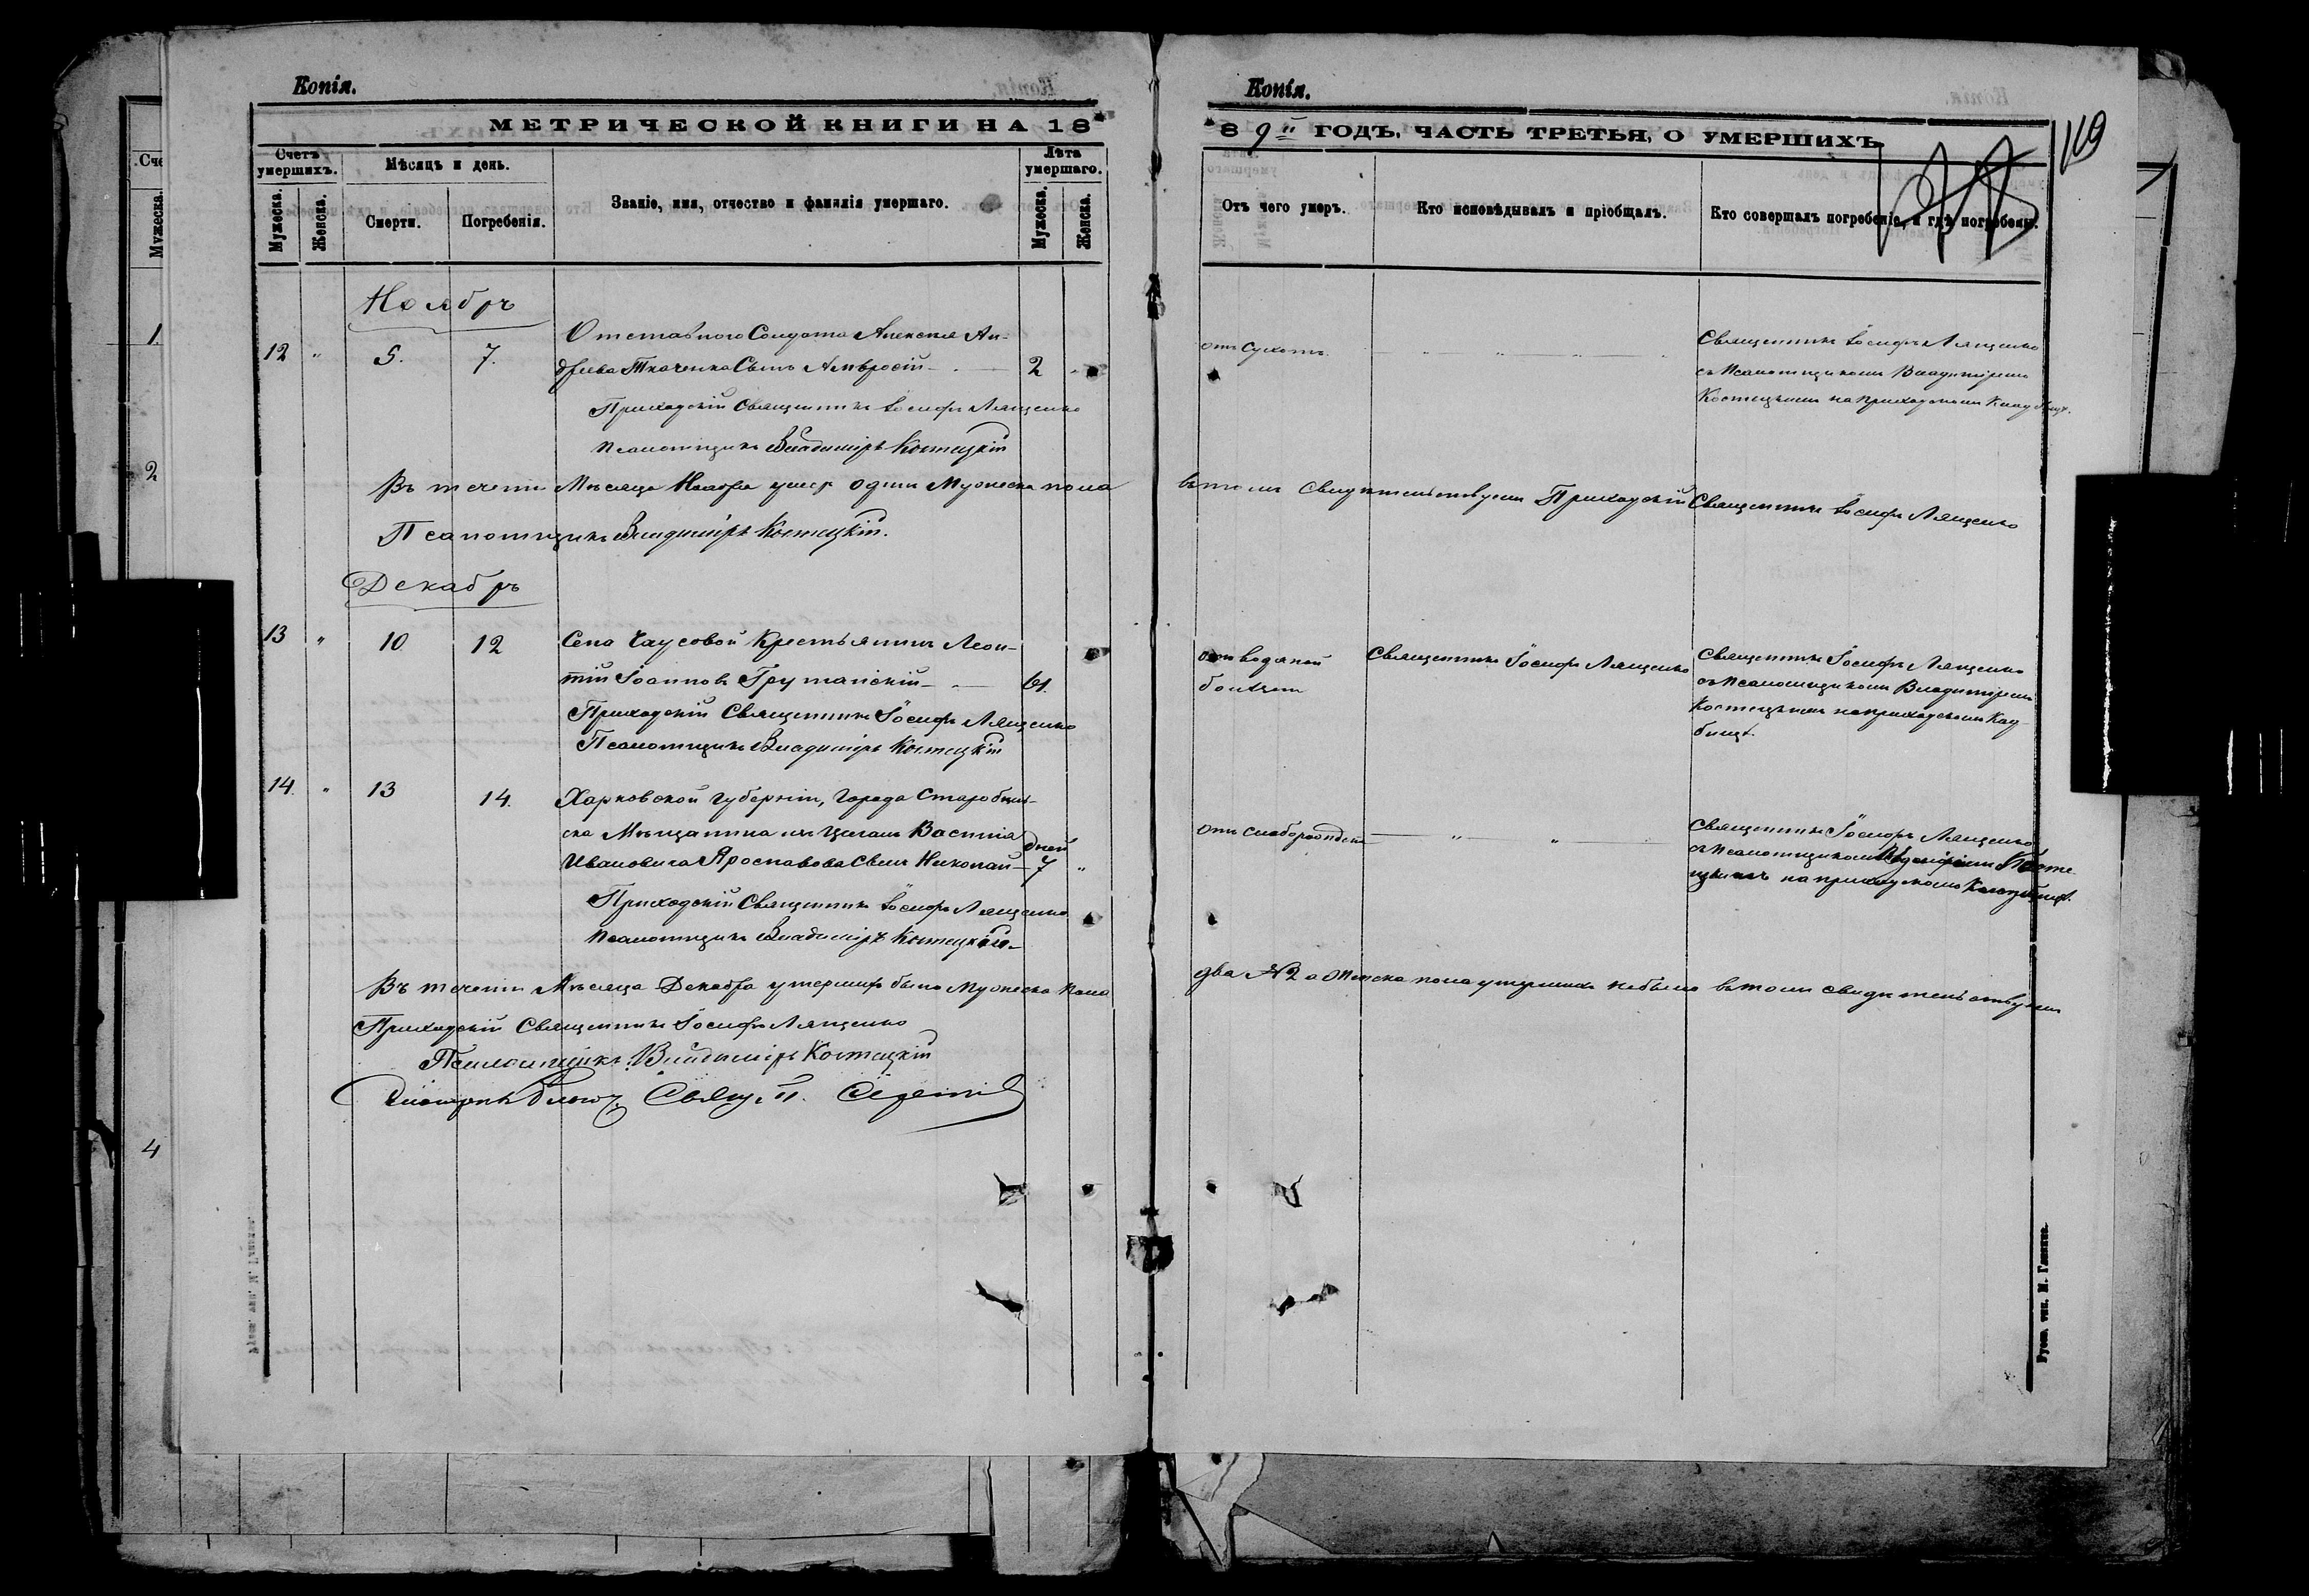 Копія.
МЕТРИЧЕСКОЙ КНИГИ НА 18
Счетъ умершихъ.
Мужеска.
Женска.
Мѣсяцъ и день.
Смерти.
Погребенія.
Званіе, имя, отчество и фамилія умершаго.
Лѣта умершаго.
Мужеска.
Женска.
Ноябрь
12 " 5. 7.
Отставного Солдата Алексія Ан-
дреева Ткаченка Сынъ Амвросій 2
Приходскій Священникъ Іосифъ Лященко
Псаломщикъ Владиміръ Костецкій
Въ теченіи Мѣсяца Ноября умер один Мужеска пола
Псаломщикъ Владиміръ Костецкій.
Декабрь
13 " 10 12
Села Чаусовой Крестьянинъ Леон-
тій Іоанновъ 61.
Приходскій Священникъ Іосифъ Лященко
Псаломщикъ Владиміръ Костецкій
14. " 13 14.
Харковской губерніи, Города Старобѣль-
ска Мѣщанина изъ Цыганъ Василія
Ивановича Ярославова Сынъ Николай дней 7 "
Приходскій Священникъ Іосифъ Лященко
Псаломщикъ Владиміръ
Въ теченіи Мѣсяца Декабря умершихъ было Мужеска пола
Приходскій Священникъ Іосифъ Лященко
Псаломщикъ Владиміръ Костецкій
Копія.
8 9 ГОДЪ, ЧАСТЬ ТРЕТЬЯ, О УМЕРШИХЪ
119
Отъ чего умеръ.
Кто исповѣдывалъ и пріобщалъ.
Кто совершалъ погребеніе, и гдѣ погребены.
отъ Сухотъ.
Священникъ Іосифъ Лященко
съ Псаломщикомъ Владиміромъ
Костецкимъ на приходскомъ
въ томъ свидѣтельствуемъ Приходскій Священникъ Іосифъ Лященко
отъ водяной
болѣзни
Священникъ Іосифъ Лященко
Священникъ Іосифъ Лященко
съ Псаломщикомъ Владиміромъ
Костецкимъ на приходскомъ Клад-
бищѣ.
отъ
Священникъ Іосифъ Лященко
съ Псаломщикомъ Косте-
цкимъ на приходскомъ
два №2 а Женска пола умершихъ небыло въ томъ свидѣтельствуемъ
Русск. тип. М. Ганина.